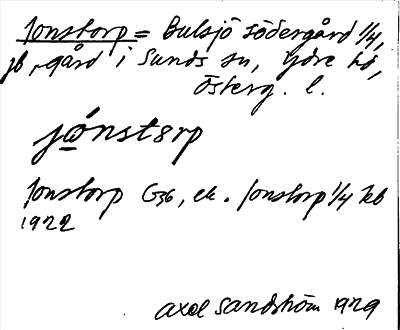 Jonstorp = Bulsjö södergård 1/4,
jb,-gård i Sunds sn, Ydre hd,
Österg. l.
jónstorp
Jonstorp G36, ek. Jonstorp 1/4 Jeb
1922
Axel Sandström 1929